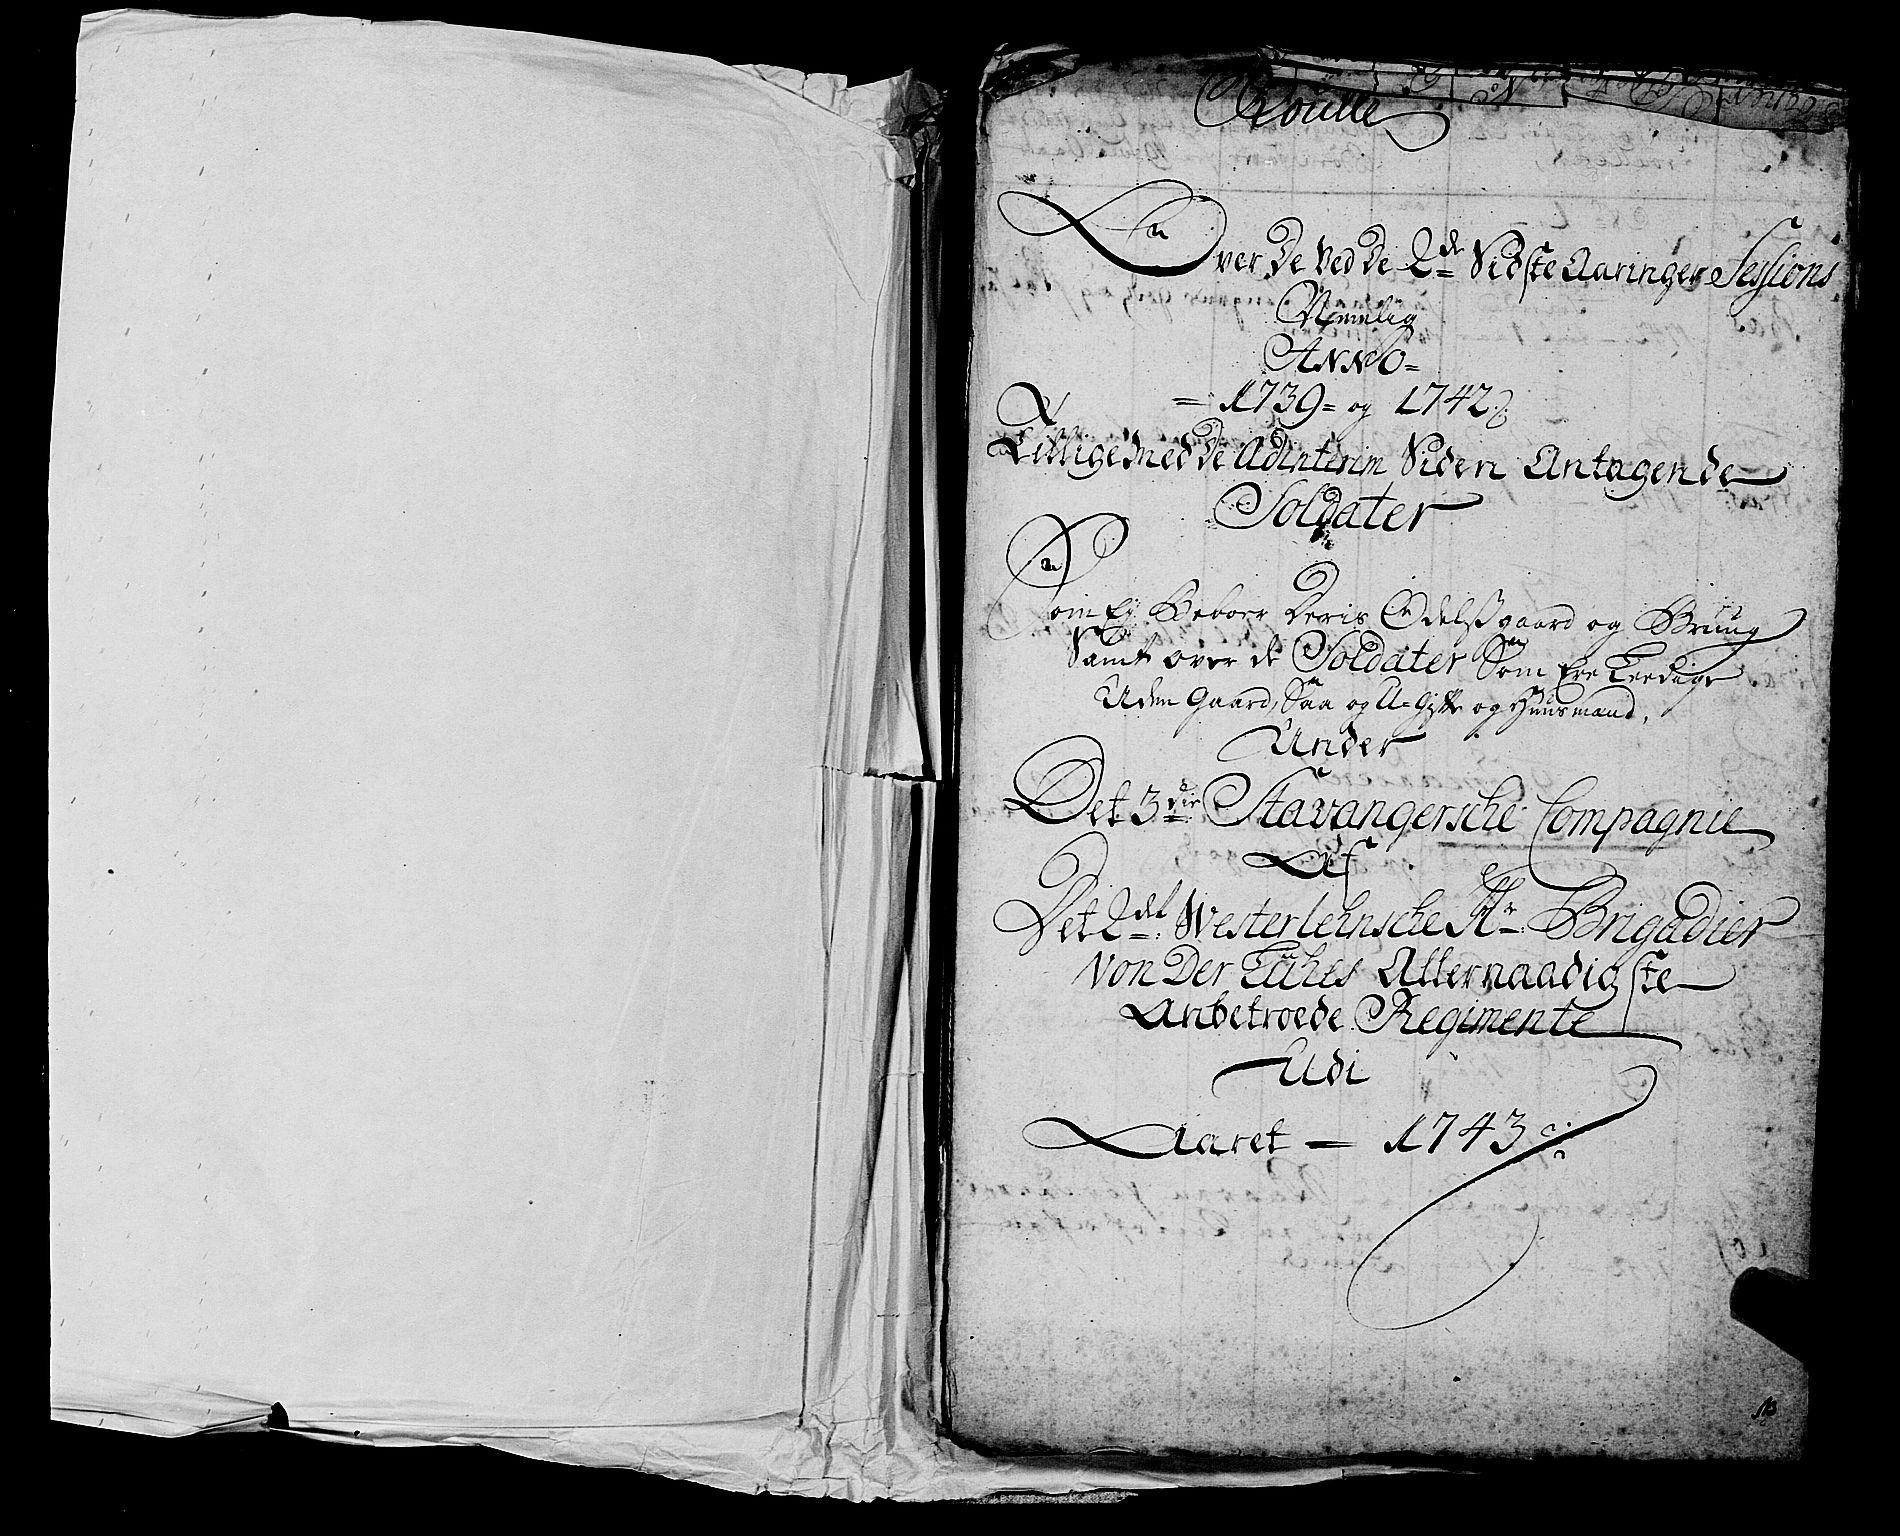 Roulle
Over De Ved De 2de Sidste Aaringer Sessions
Nemlig
ANNO=
= 1739= og 1742
Tillige Med De Ad interim Siden Antagende
Soldater
Som Ej Beboer Deris Odelsgaard og Bruug
Samt over de Soldater Som Ere Leedige
Uden Gaard, Saa og U=Gifte og Huusmænd,
Under
Det 3die Stavangersche Compagnie
Af
Det 2det Westerlehnsche Hr: Brigadier
Von Der Lühes Allernaadigste
Anbetroede Regimente
Udi
Aaret = 1743